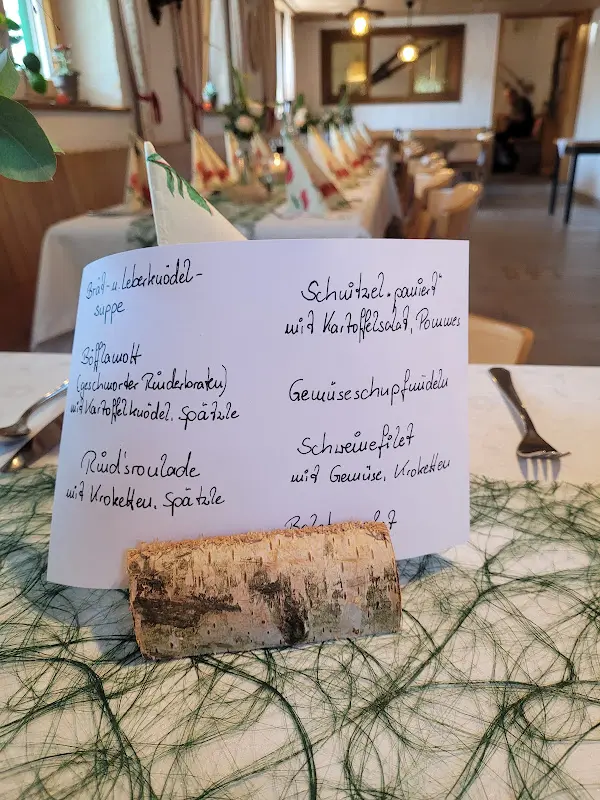 Brät- u. Leberknödel-
suppe
Böfflamott
(geschmorter Rinderbraten)
mit Kartoffelknödel, Spätzle
Rindsroulade
mit Kroketten, Spätzle
Schnitzel "paniert"
mit Kartoffelsalat, Pommes
Gemüseschupfnudeln
Schweinefilet
mit Gemüse, Kroketten